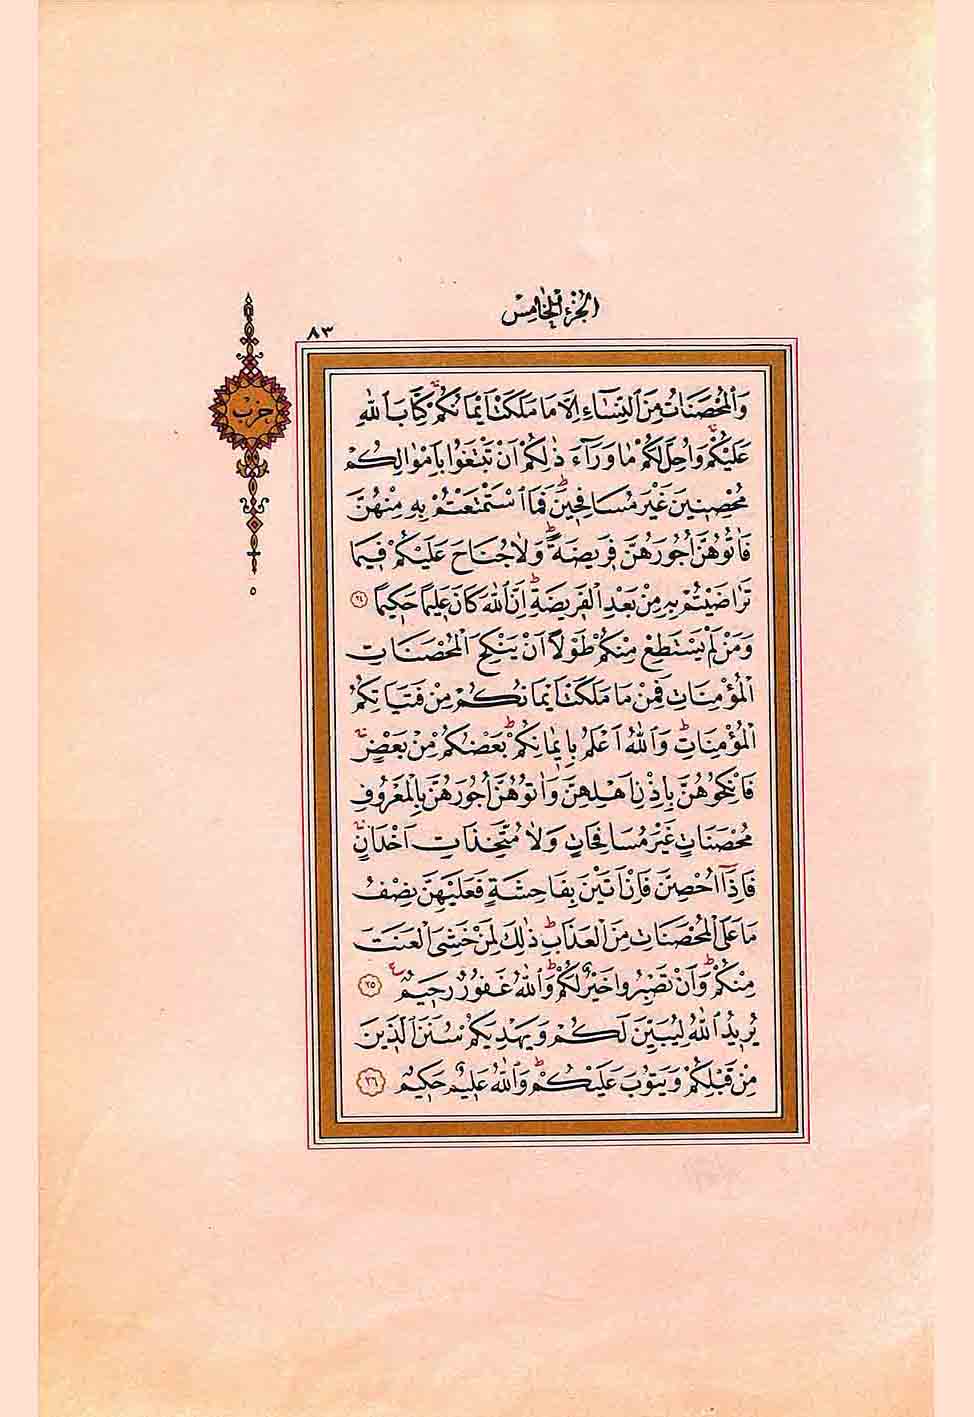 الجزء الخامس
٨٣
حزب
٥
وَالْمُحْصَنَاتُ مِنَ النِّسَٓاءِ اِلَّا مَا مَلَكَتْ اَيْمَانُكُمْۚ كِتَابَ اللّٰهِ
عَلَيْكُمْۚ وَاُحِلَّ لَكُمْ مَا وَرَٓاءَ ذٰلِكُمْ اَنْ تَبْتَغُوا بِاَمْوَالِكُمْ
مُحْصِنٖينَ غَيْرَ مُسَافِحٖينَؕ فَمَا اسْتَمْتَعْتُمْ بِهٖ مِنْهُنَّ
فَاٰتُوهُنَّ اُجُورَهُنَّ فَرٖيضَةًؕ وَلَا جُنَاحَ عَلَيْكُمْ فٖيمَا
تَرَاضَيْتُمْ بِهٖ مِنْ بَعْدِ الْفَرٖيضَةِؕ اِنَّ اللّٰهَ كَانَ عَلٖيمًا حَكٖيمًا ﴿٢٤﴾
وَمَنْ لَمْ يَسْتَطِعْ مِنْكُمْ طَوْلًا اَنْ يَنْكِحَ الْمُحْصَنَاتِ
الْمُؤْمِنَاتِ فَمِنْ مَا مَلَكَتْ اَيْمَانُكُمْ مِنْ فَتَيَاتِكُمُ
الْمُؤْمِنَاتِؕ وَاللّٰهُ اَعْلَمُ بِاٖيمَانِكُمْؕ بَعْضُكُمْ مِنْ بَعْضٍۚ
فَانْكِحُوهُنَّ بِاِذْنِ اَهْلِهِنَّ وَاٰتُوهُنَّ اُجُورَهُنَّ بِالْمَعْرُوفِ
مُحْصَنَاتٍ غَيْرَ مُسَافِحَاتٍ وَلَا مُتَّخِذَاتِ اَخْدَانٍۚ
فَاِذَٓا اُحْصِنَّ فَاِنْ اَتَيْنَ بِفَاحِشَةٍ فَعَلَيْهِنَّ نِصْفُ
مَا عَلَى الْمُحْصَنَاتِ مِنَ الْعَذَابِؕ ذٰلِكَ لِمَنْ خَشِىَ الْعَنَتَ
مِنْكُمْؕ وَاَنْ تَصْبِرُوا خَيْرٌ لَكُمْؕ وَاللّٰهُ غَفُورٌ رَحٖيمٌ ع ﴿٢٥﴾
يُرٖيدُ اللّٰهُ لِيُبَيِّنَ لَكُمْ وَيَهْدِيَكُمْ سُنَنَ الَّذٖينَ
مِنْ قَبْلِكُمْ وَيَتُوبَ عَلَيْكُمْؕ وَاللّٰهُ عَلٖيمٌ حَكٖيمٌ ﴿٢٦﴾